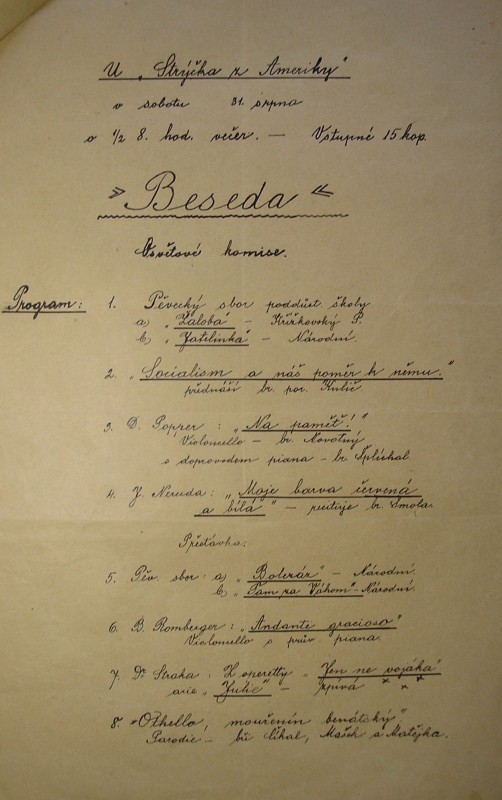 U „Strýčka z Ameriky"
v sobotu 31. srpna
o 1/2 8. hod. večer. — Vstupné 15 kop.
» Beseda «
Osvětové komise.
Program: 1. Pěvecký sbor poddůst. školy
a) „Žaloba" — Křížkovský P.
b) „Zatelinka" — Národní.
2. „Socialism a náš poměr k němu."
přednáší br. por. Kulič
3. D. Popper: „Na paměť!"
Violoncello — br. Novotný
s doprovodem piana — br. Šplíchal
4. J. Neruda: „Moje barva červená
a bílá" — recituje br. Smola.
Přestávka:
5. Pěv. sbor: a) „Bolezár" — Národní.
b) „Tam za Váhom" — Národní.
6. B. Romberger: „Andante gracioso"
Violoncello s prův. piana.
7. Dr Straka: Z operetty „Jen ne vojáka"
arie „Julie" — zpívá * * *
8. „Othello, mouřenín benátský".
Parodie — bří Cikal, Mašek a Matějka.